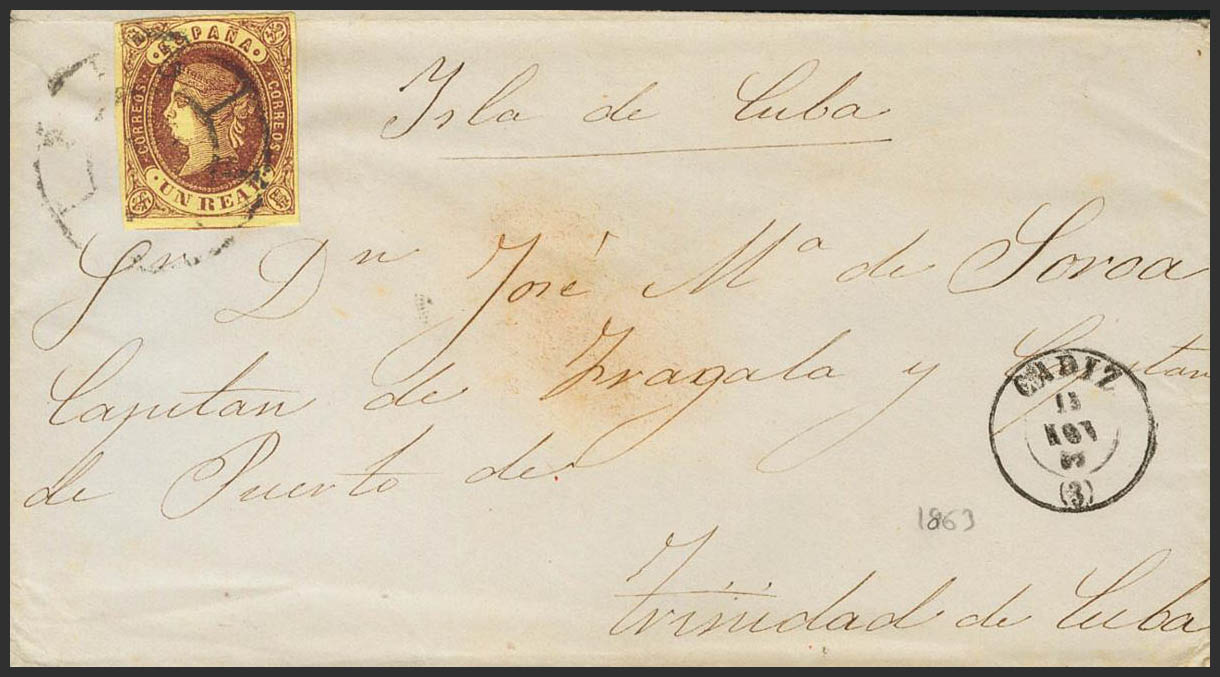 ESPAÑA
CORREOS
CORREOS
UN REAL
Isla de Cuba
Sr Dn José Mª de Soroa
Capitan de Fragata y Capitan
de Puerto de
Trinidad de Cuba
CADIZ
NOV
(3)
1863